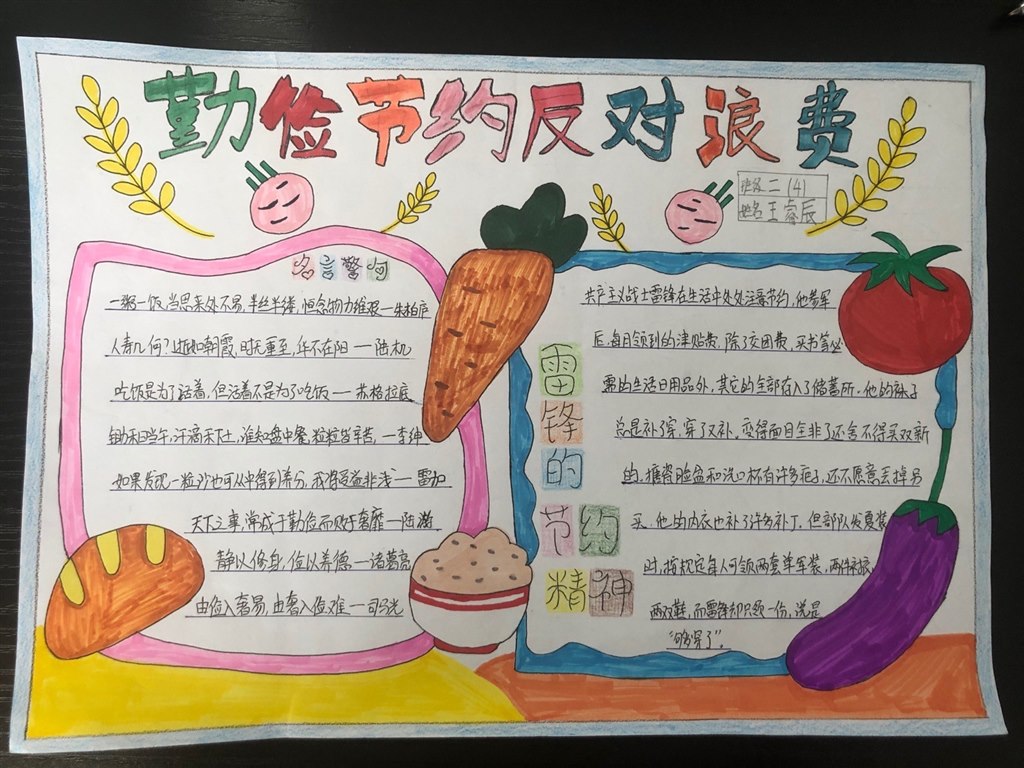 勤俭节约反对浪费
班级 二(4)
姓名 王睿辰
名言警句
一粥一饭,当思来处不易,半丝半缕,恒念物力维艰——朱柏庐
人寿几何?逝如朝霞,时无重至,华不在阳——陆机
吃饭是为了活着,但活着不是为了吃饭——苏格拉底
锄禾日当午,汗滴禾下土,谁知盘中餐,粒粒皆辛苦,——李绅
如果发现一粒沙也可以中得到养分,我将受益非浅——雷加
天下之事,常成于勤俭而败于奢靡——陆游
静以修身,俭以养德——诸葛亮
由俭入奢易,由奢入俭难——司马光
雷锋的节约精神
共产主义战士雷锋在生活中处处注意节约,他参军
后,每月领到的津贴费,除了交团费,买书等必
需的生活日用品外,其它的全部存入了储蓄所,他的袜子
总是补了穿,穿了又补,变得面目全非了还舍不得买双新
的,搪瓷脸盆和洗口杯有许多疤了,还不愿意丢掉另
买,他的内衣也补了许多补丁,但部队发夏装
时,按规定每人可领两套单军装,两件衬衣,
两双鞋,而雷锋却只领一份,说是
“够穿了”。